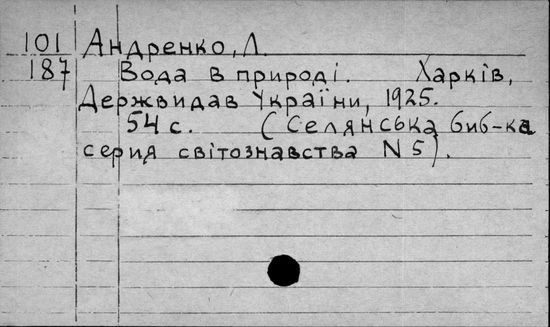 101 Андренко, Л.
187 Вода в природі. Харків,
Держвидав України, 1925.
54 с. (Селянська биб-ка
серия світознавства N 5).